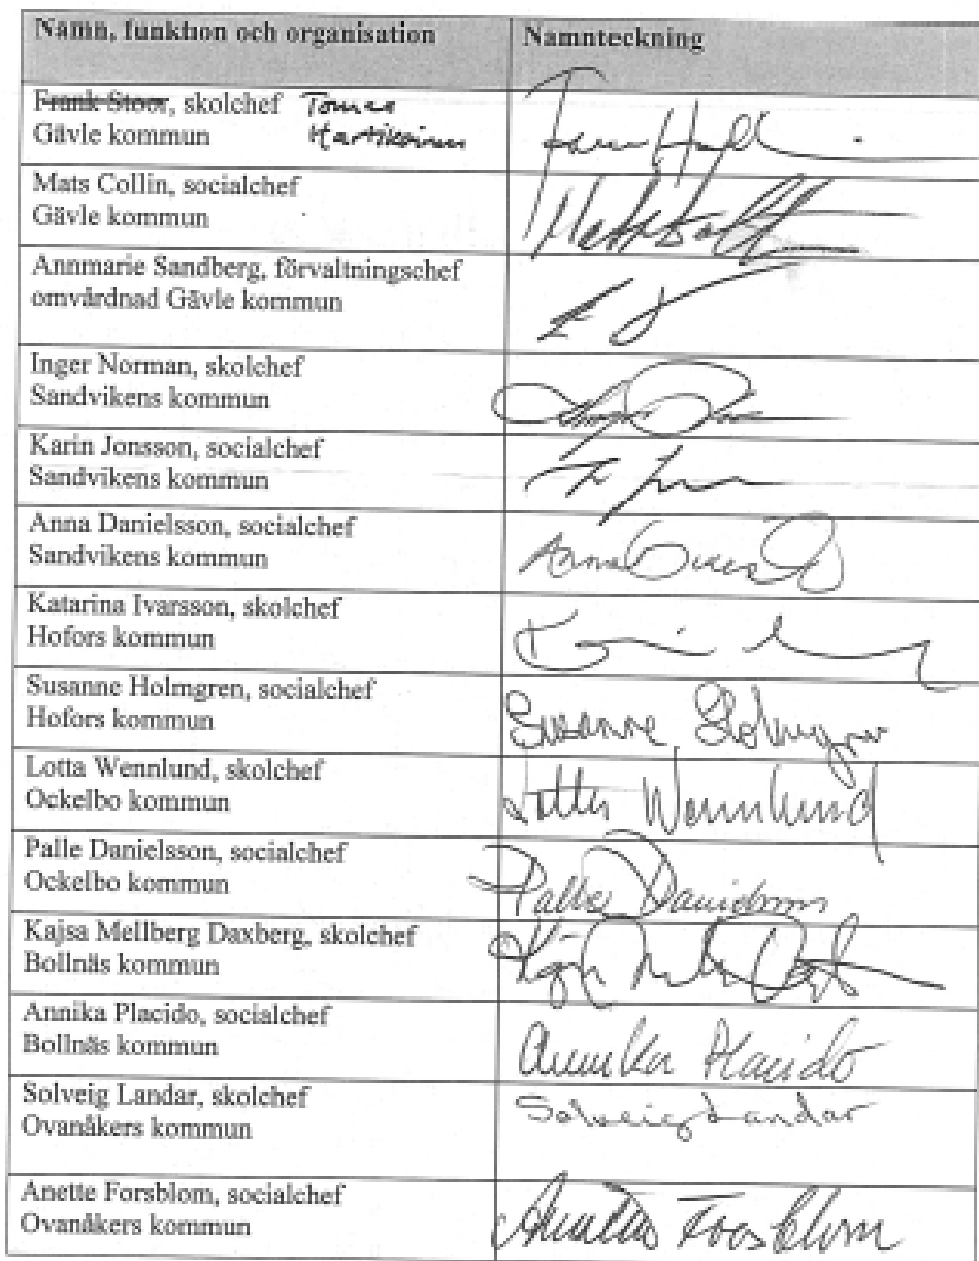 Namn, funktion och organisation Namnteckning
Frank Stoor, skolchef Tomas
Gävle kommun
Mats Collin, socialchef
Gävle kommun
Annmarie Sandberg, förvaltningschef
omvårdnad Gävle kommun
Inger Norman, skolchef
Sandvikens kommun
Karin Jonsson, socialchef
Sandvikens kommun
Anna Danielsson, socialchef
Sandvikens kommun
Katarina Ivarsson, skolchef
Hofors kommun
Susanne Holmgren, socialchef
Hofors kommun
Susanne Holmgren
Lotta Wennlund, skolchef
Ockelbo kommun
Lotta Wennlund
Palle Danielsson, socialchef
Ockelbo kommun
Palle Danielsson
Kajsa Mellberg Daxberg, skolchef
Bollnäs kommun
Annika Placido, socialchef
Bollnäs kommun
Annika Placido
Solveig Landar, skolchef
Ovanåkers kommun
Solveig Landar
Anette Forsblom, socialchef
Ovanåkers kommun
Anette Forsblom